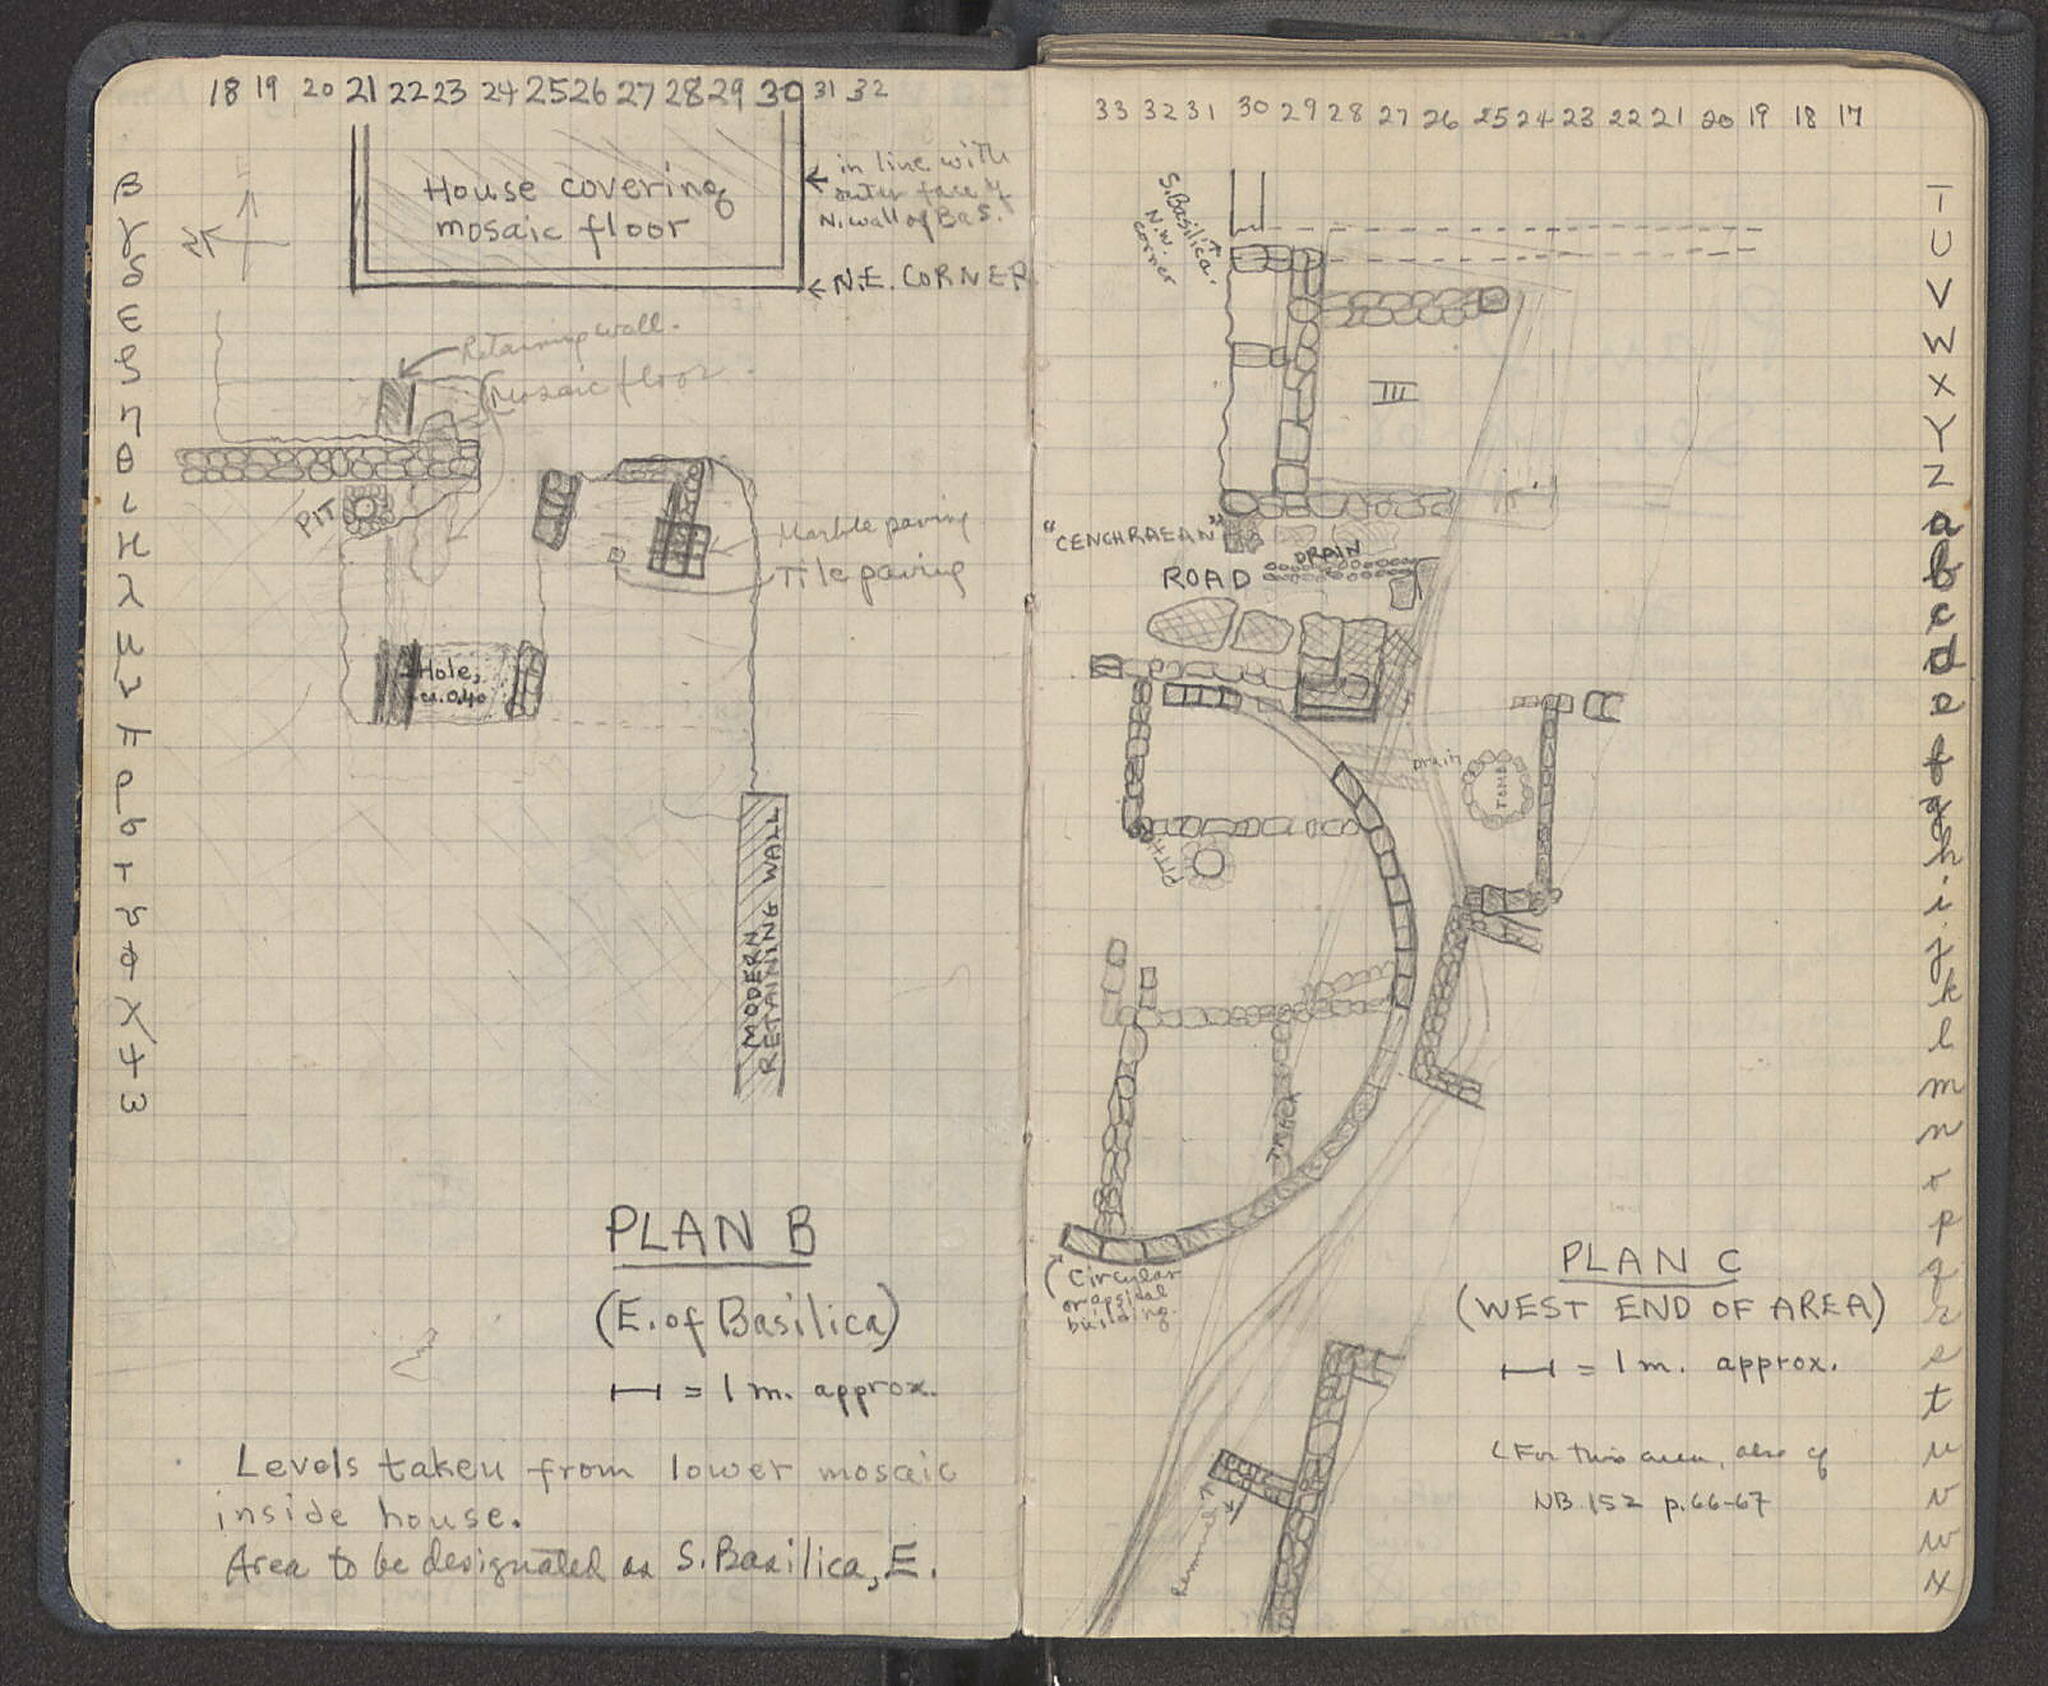 18 19 20 21 22 23 24 25 26 27 28 29 30 31 32
β
γ
δ
ε
ζ
η
θ
ι
κ
λ
μ
ν
π
ρ
σ
τ
υ
φ
χ
ψ
ω
N
House covering
mosaic floor
← in line with
outer face of
N. wall of Bas.
← N.E. CORNER
Retaining wall.
Mosaic floor
PIT
Marble paving
Tile paving
Hole,
MODERN
RETAINING WALL
PLAN B
(E. of Basilica)
= 1 m. approx.
Levels taken from lower mosaic
inside house.
Area to be designated as S. Basilica, E.
33 32 31 30 29 28 27 26 25 24 23 22 21 20 19 18 17
T
U
V
W
X
Y
Z
a
b
c
d
e
f
g
h
i
j
k
l
m
n
o
p
q
r
s
t
u
v
w
x
S. Basilica.
N.W.
corner
III
"CENCHRAEAN"
ROAD
DRAIN
Drain
TOMB
PITHOS
Circular
or apsidal
building.
Removed
PLAN C
(WEST END OF AREA)
= 1 m. approx.
(For this area, also cf
NB 152 p. 66-67